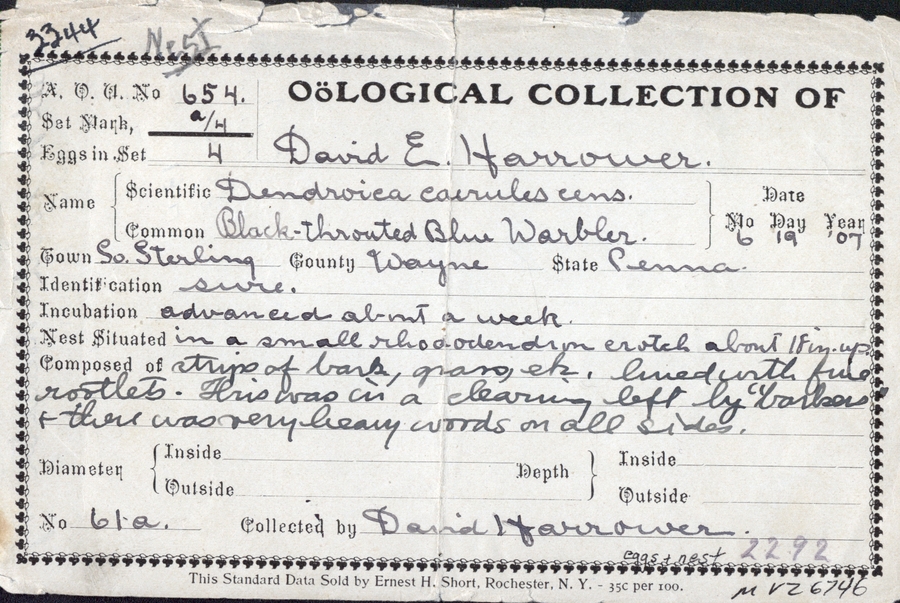 3244 Nest
A. O. U. No 654. OöLOGICAL COLLECTION OF
Set Mark, a/4
Eggs in Set 4 David E. Harrower.
Name Scientific Dendroica caerules cens. Date
Common Black-throated Blue Warbler. Mo Day Year
6 19 '07
Town So. Sterling County Wayne State Penna.
Identification sure.
Incubation advanced about a week.
Nest Situated in a small rhododendron crotch about 18 in. up.
Composed of strips of bark, grass, etc. lined with fine
rootlets. This was in a clearing left by "barkers"
+ there was very heavy woods on all sides.
Diameter Inside Depth Inside
Outside Outside
No 61a. Collected by David Harrower.
eggs + nest 2292
This Standard Data Sold by Ernest H. Short, Rochester, N. Y. - 35c per 100.
MVZ 6746